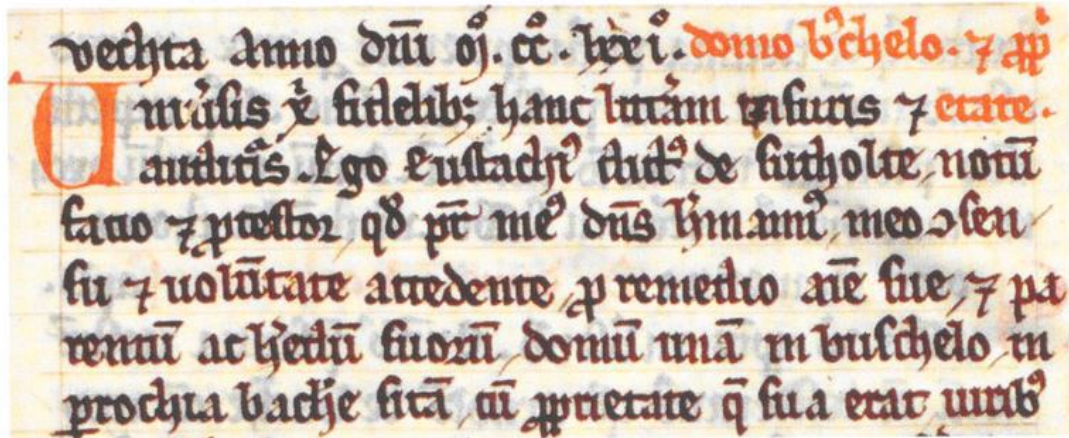 vechta anno dñi oꝯ. cͦcͦ. lxxiͦ. domo bˀchelo. ⁊ ꝓpͥ
Uniuͥsis xͥ fidelibꝫ hanc litͥam uisuris ⁊ etate.
auditͥis. Ego Eustachiꝰ dictꝰ de sutholte, notū
facio ⁊ ꝓtestor, qđ pͣt meꝰ dn̄s hͥmannꝰ, meo ↄsen
su ⁊ uolūtate accedente, ꝓ remedio aīe sue, ⁊ pa
rentū ac hͥedū suorū, domū unā in buschelo, in
ꝑrochia bachͥe sitā, cū ꝓprietate q̄ sua erat uiribꝰ